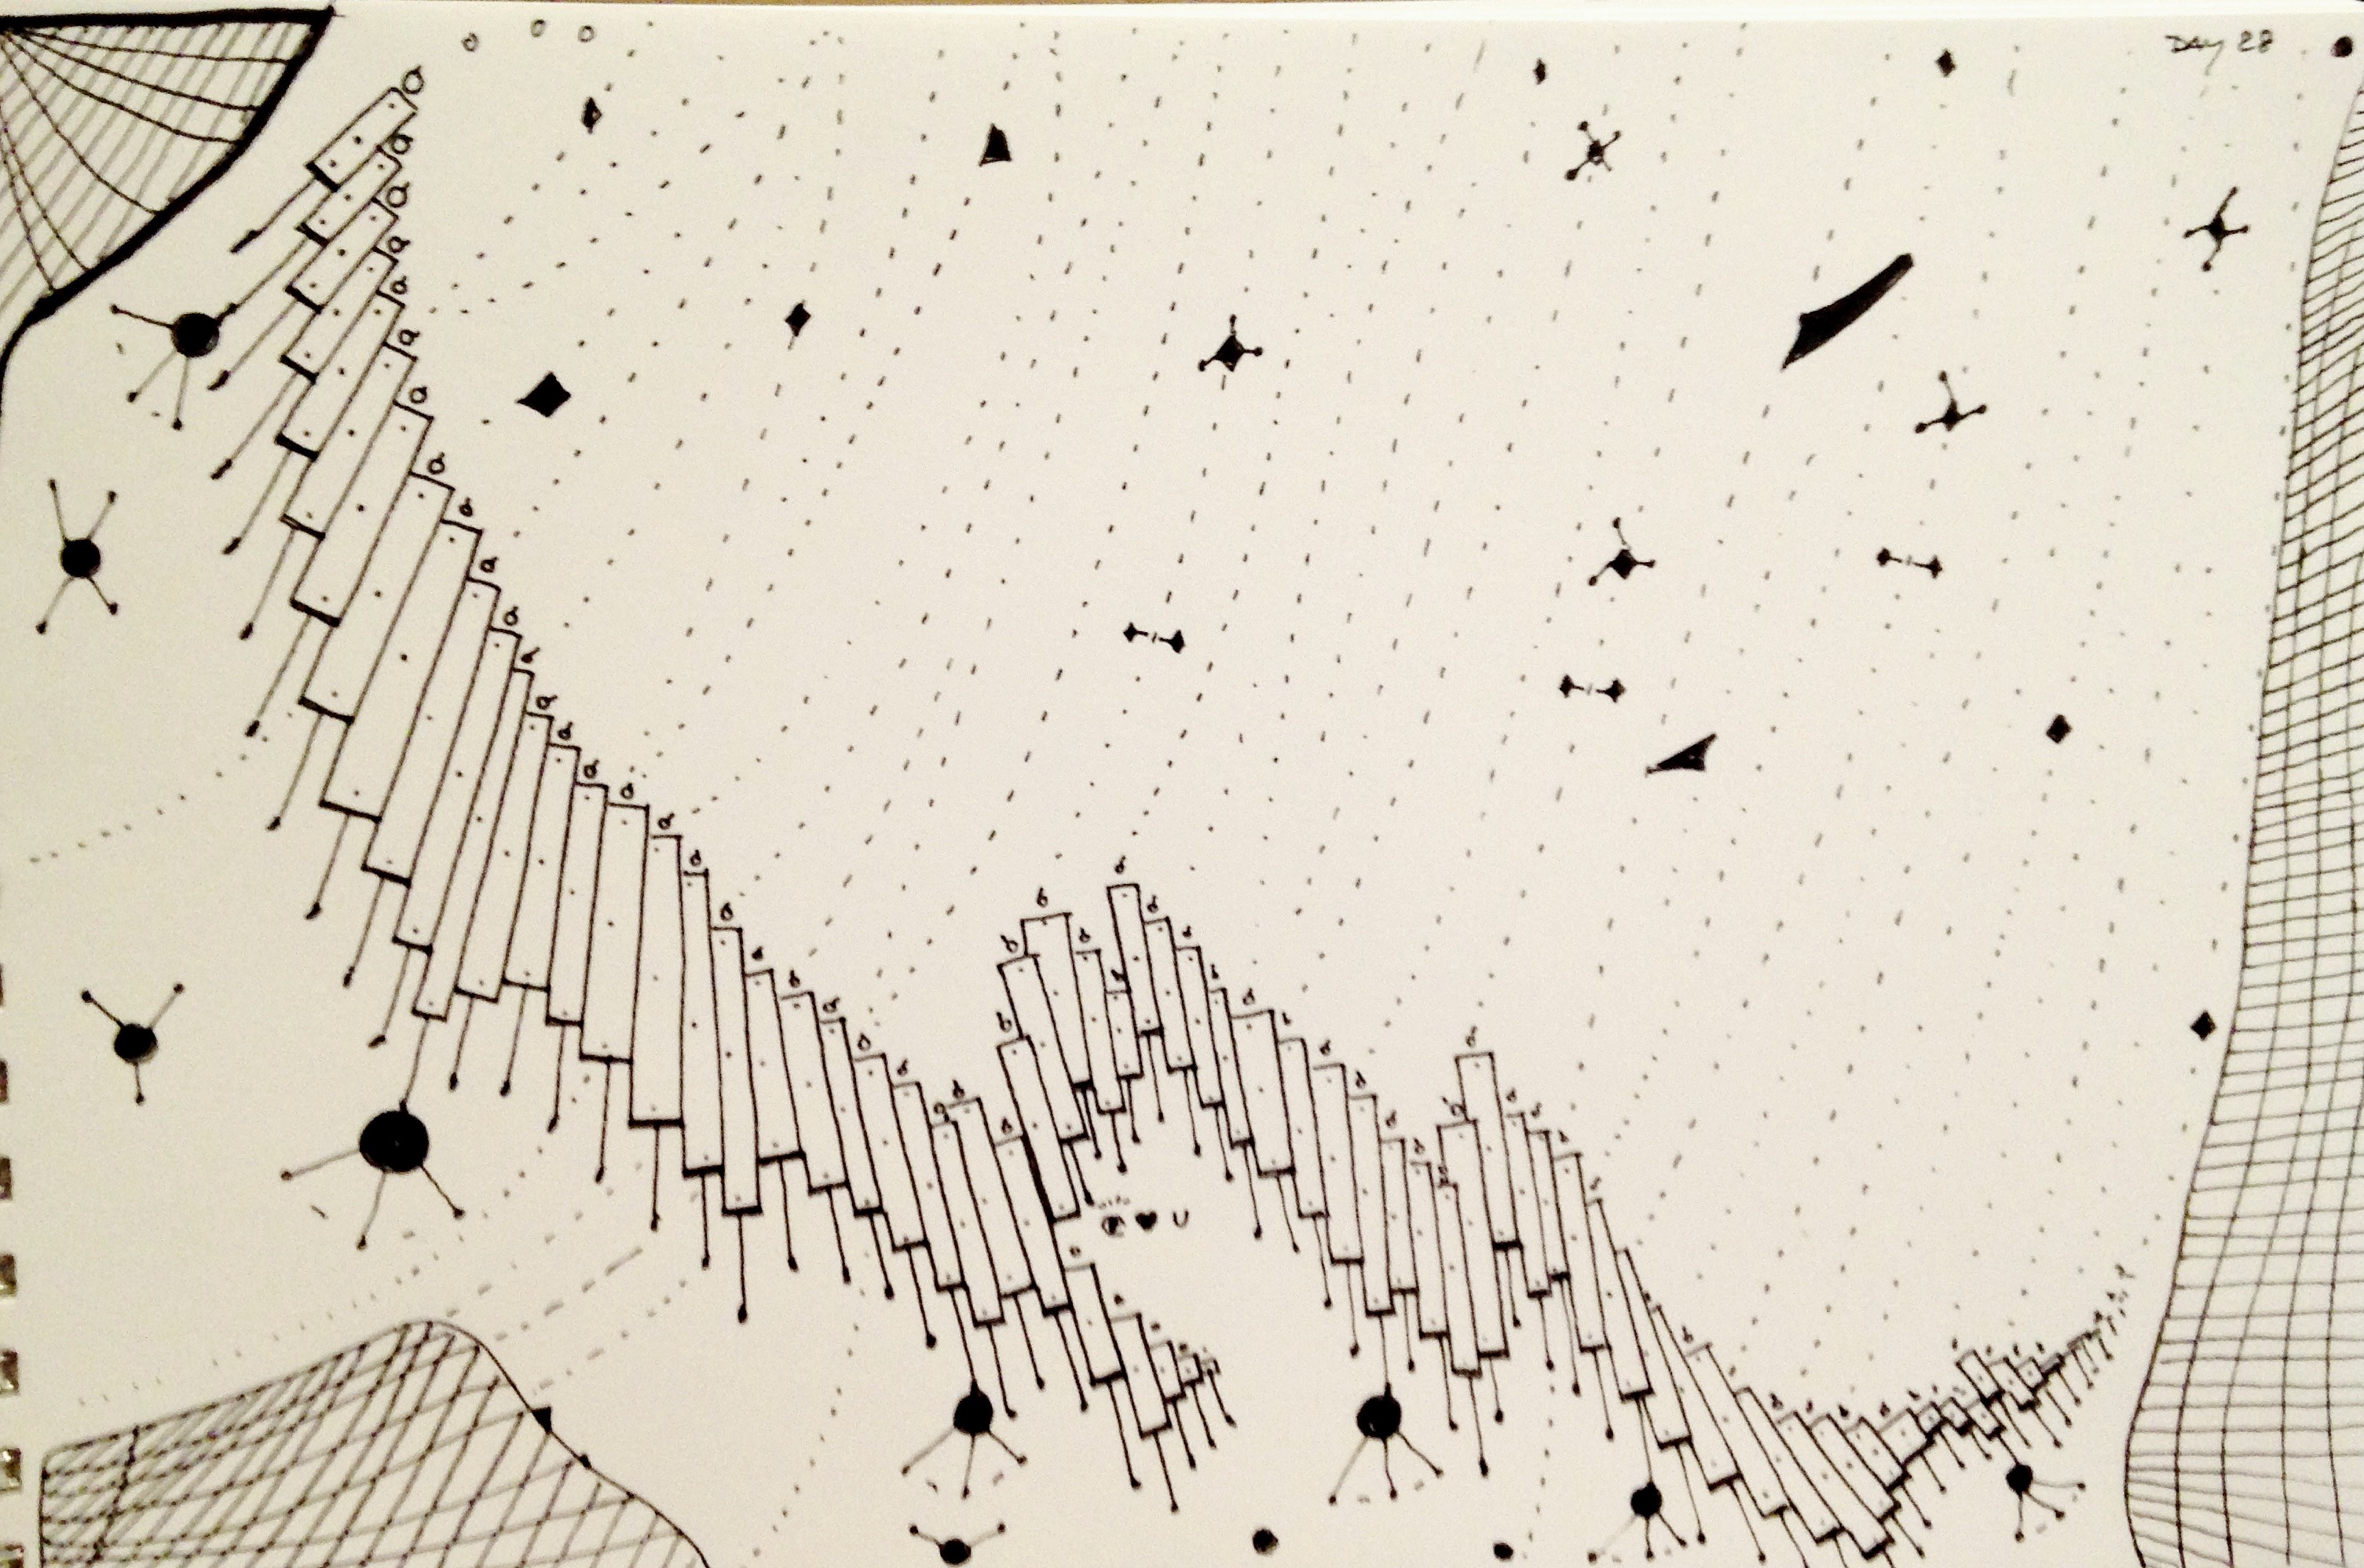 DAY 28
♥ U